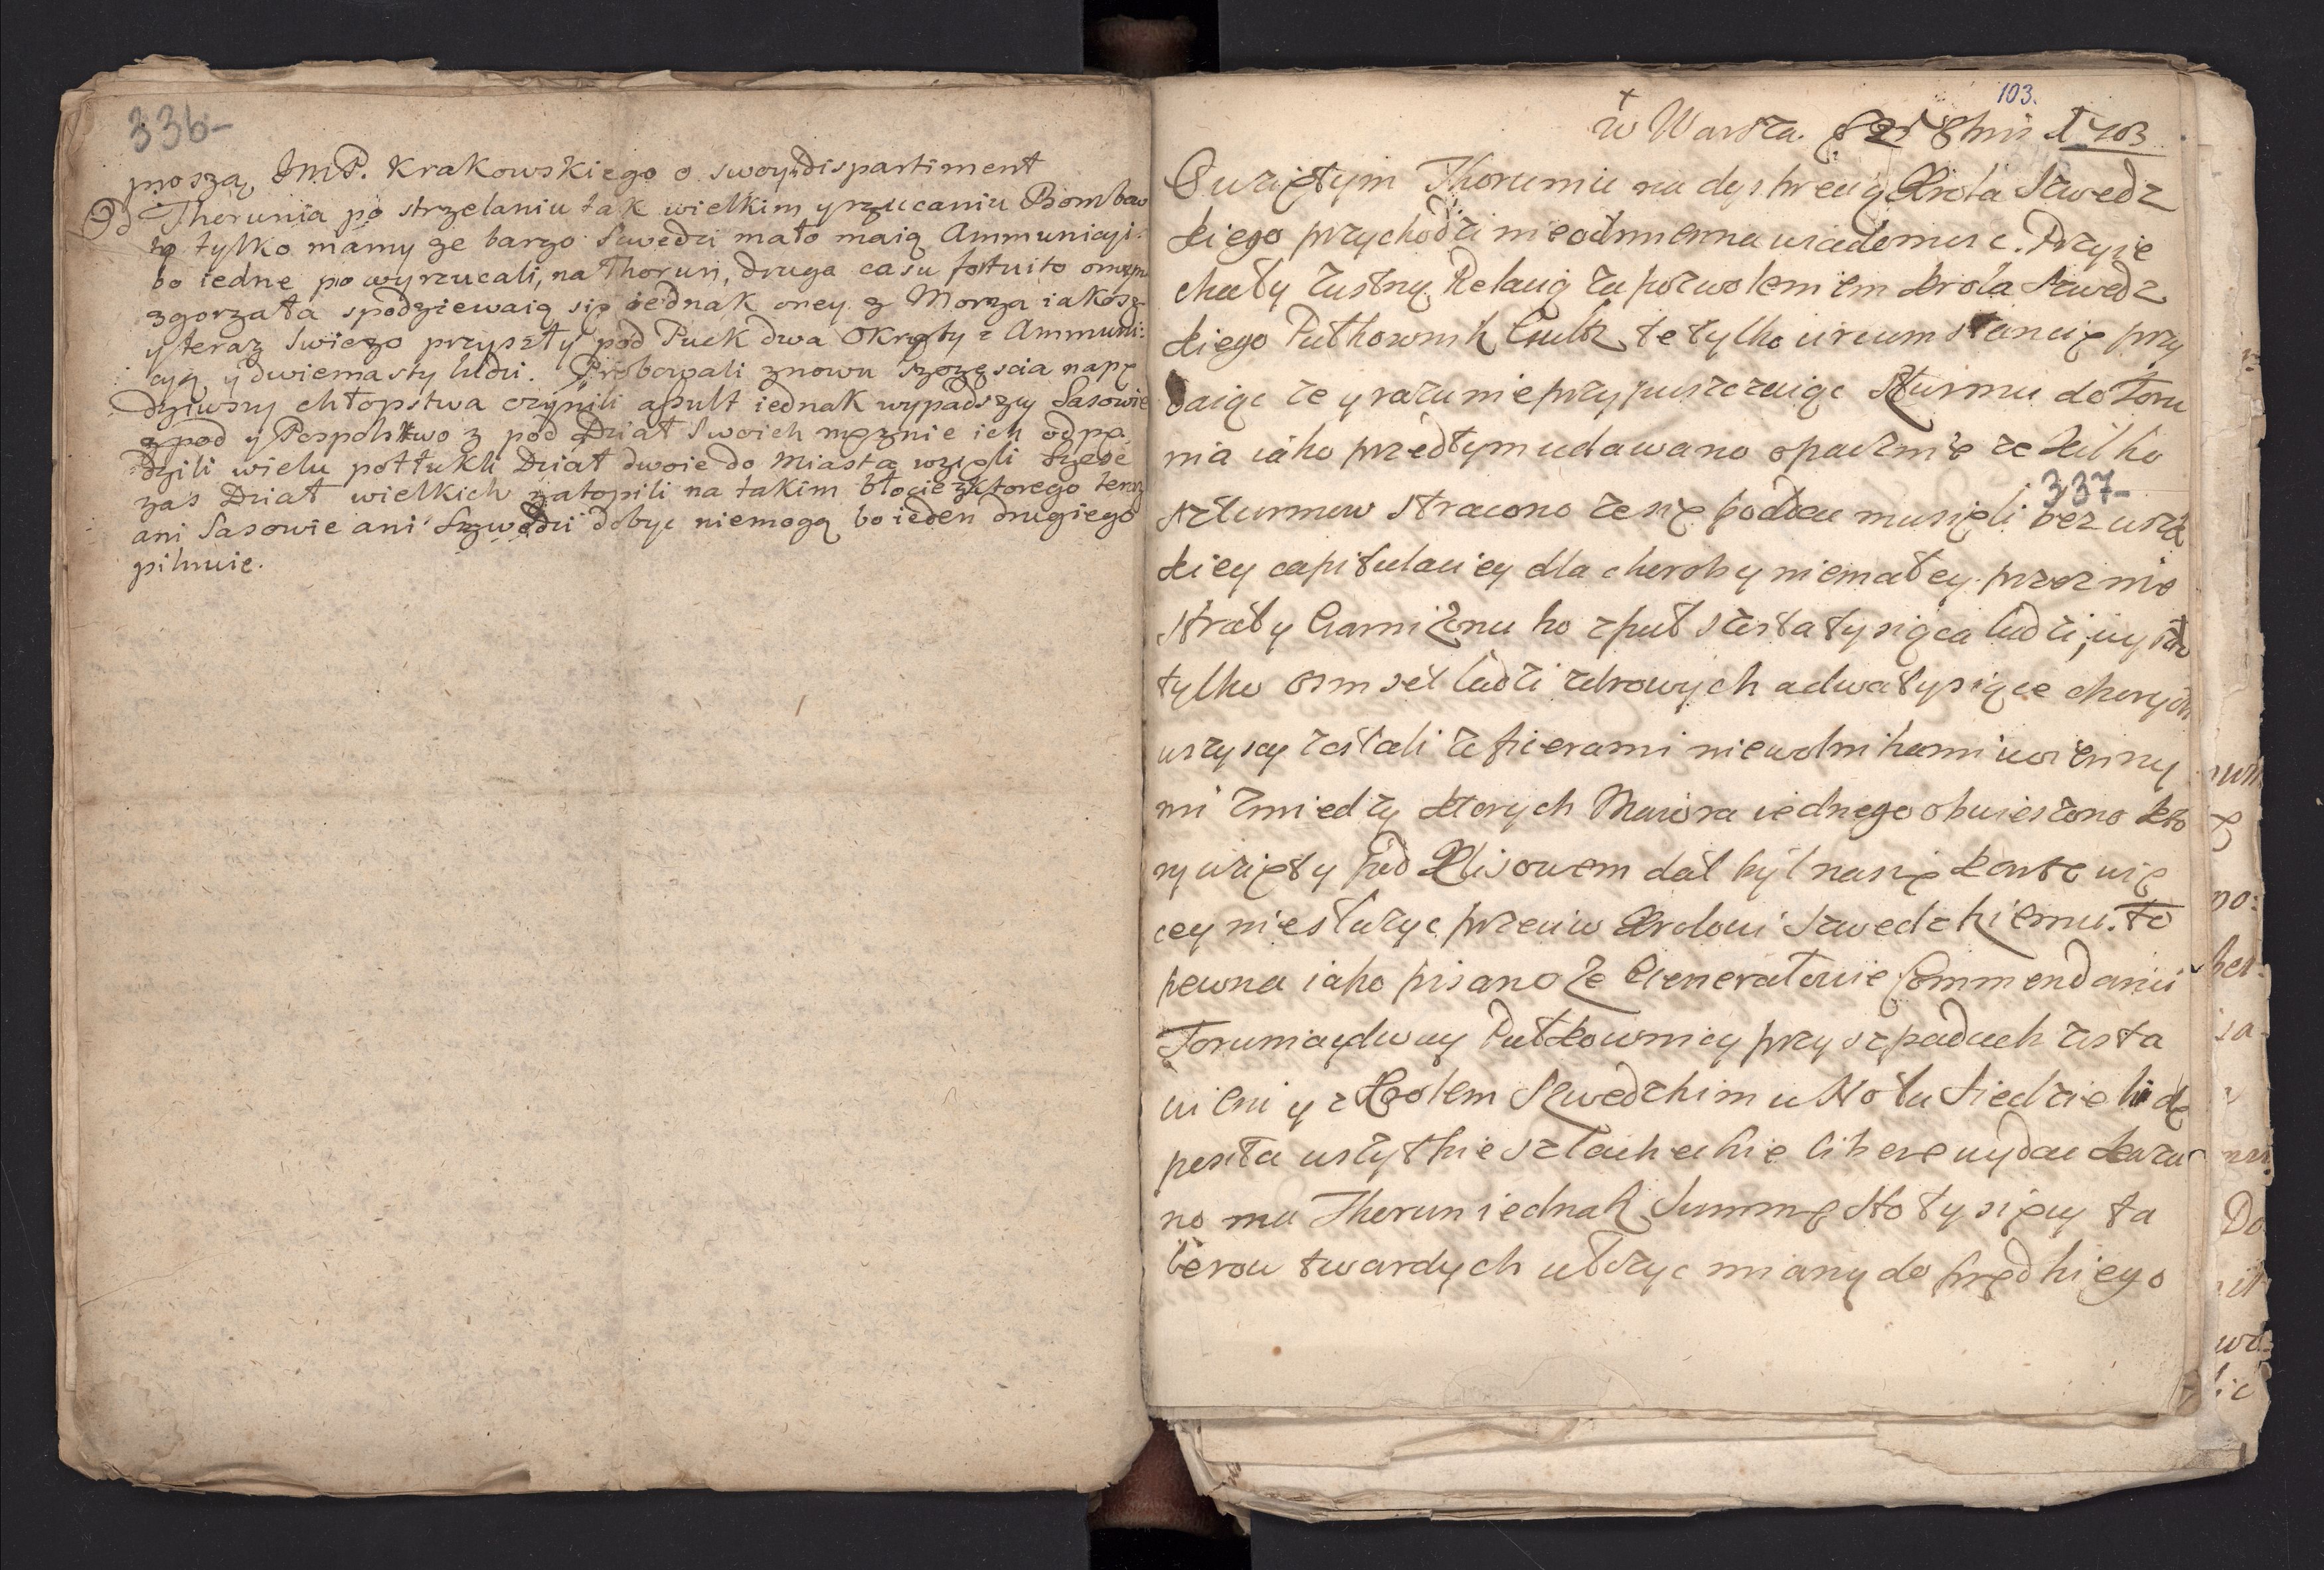 336-
proszą JmP. Krakowskiego o swoy dispartiment
Od Thorunia po strzelaniu tak wielkim y rzucaniu Bomb
to tylko mamy ze barzo Szwedzi mało maią Ammunicyi
bo iedne powyrzucali, na Thorun, druga casu fortuito
zgorzała spodziewaią się iednak oney z Morza iakosz
y teraz swiezo przyszły pod Puck dwa Okręty z Ammuni:
cyą y dwiemasty ludzi. Probowali znowu szczęscia napę
dziwszy chłopstwa czynili assult iednak wypadszy Sasowie
y Pospolstwo z pod Dział swoich męznie ich odpę
dzili wielu potłukli Dział dwoie do Miasta wzięli szesc
zas Dział wielkich zatopili na takim błocie z ktorego teraz
ani Sasowie ani Szwedzi dobyc niemogą bo ieden drugiego
pilnuie.
103.
w Warsza. 8bris 1703
O wziętym Thoruniu na dyskrecyą Krola Szwedz
kiego przychodzi nieodmienna wiadomosc. Przyie
chały z ustną Relacią za pozwoleniem Krola Szwedz
kiego Pułkownik te tylko circumstancię przy
daiąc ze y razu nie przypuszczaiąc szturmu do Toru
nia iako przedtym udawano opacznie ze kilko
337-
szturmow stracono ze się poddac musięli bez wsza
kiey capitulaciey dla choroby niemałey przez nie
straty Garnizonu bo z puł szosta tysiąca ludzi, wyszło
tylko osm set ludzi zdrowych a dwa tysiące chorych
wszyscy zostali z Oficerami niewolnikami woienny
mi zmiedzy ktorych Maiora iednego obwieszono kto
ry wzięty pod Klisowem dał był na się kartę wię
cey niesłuzyc przeciw Krolowi Szwedzkiemu. to
pewna iako pisano ze Generałowie Commendanci
Torunia y dway Pułkownicy przy szpadach zosta
wieni y z Krolem Szwedzkim u stołu siedzieli de
posita wszytkie szlacheckie libere wydac kaza
no ma Thorun iednak summę sto tysięcy ta
lerow twardych do prędkiego